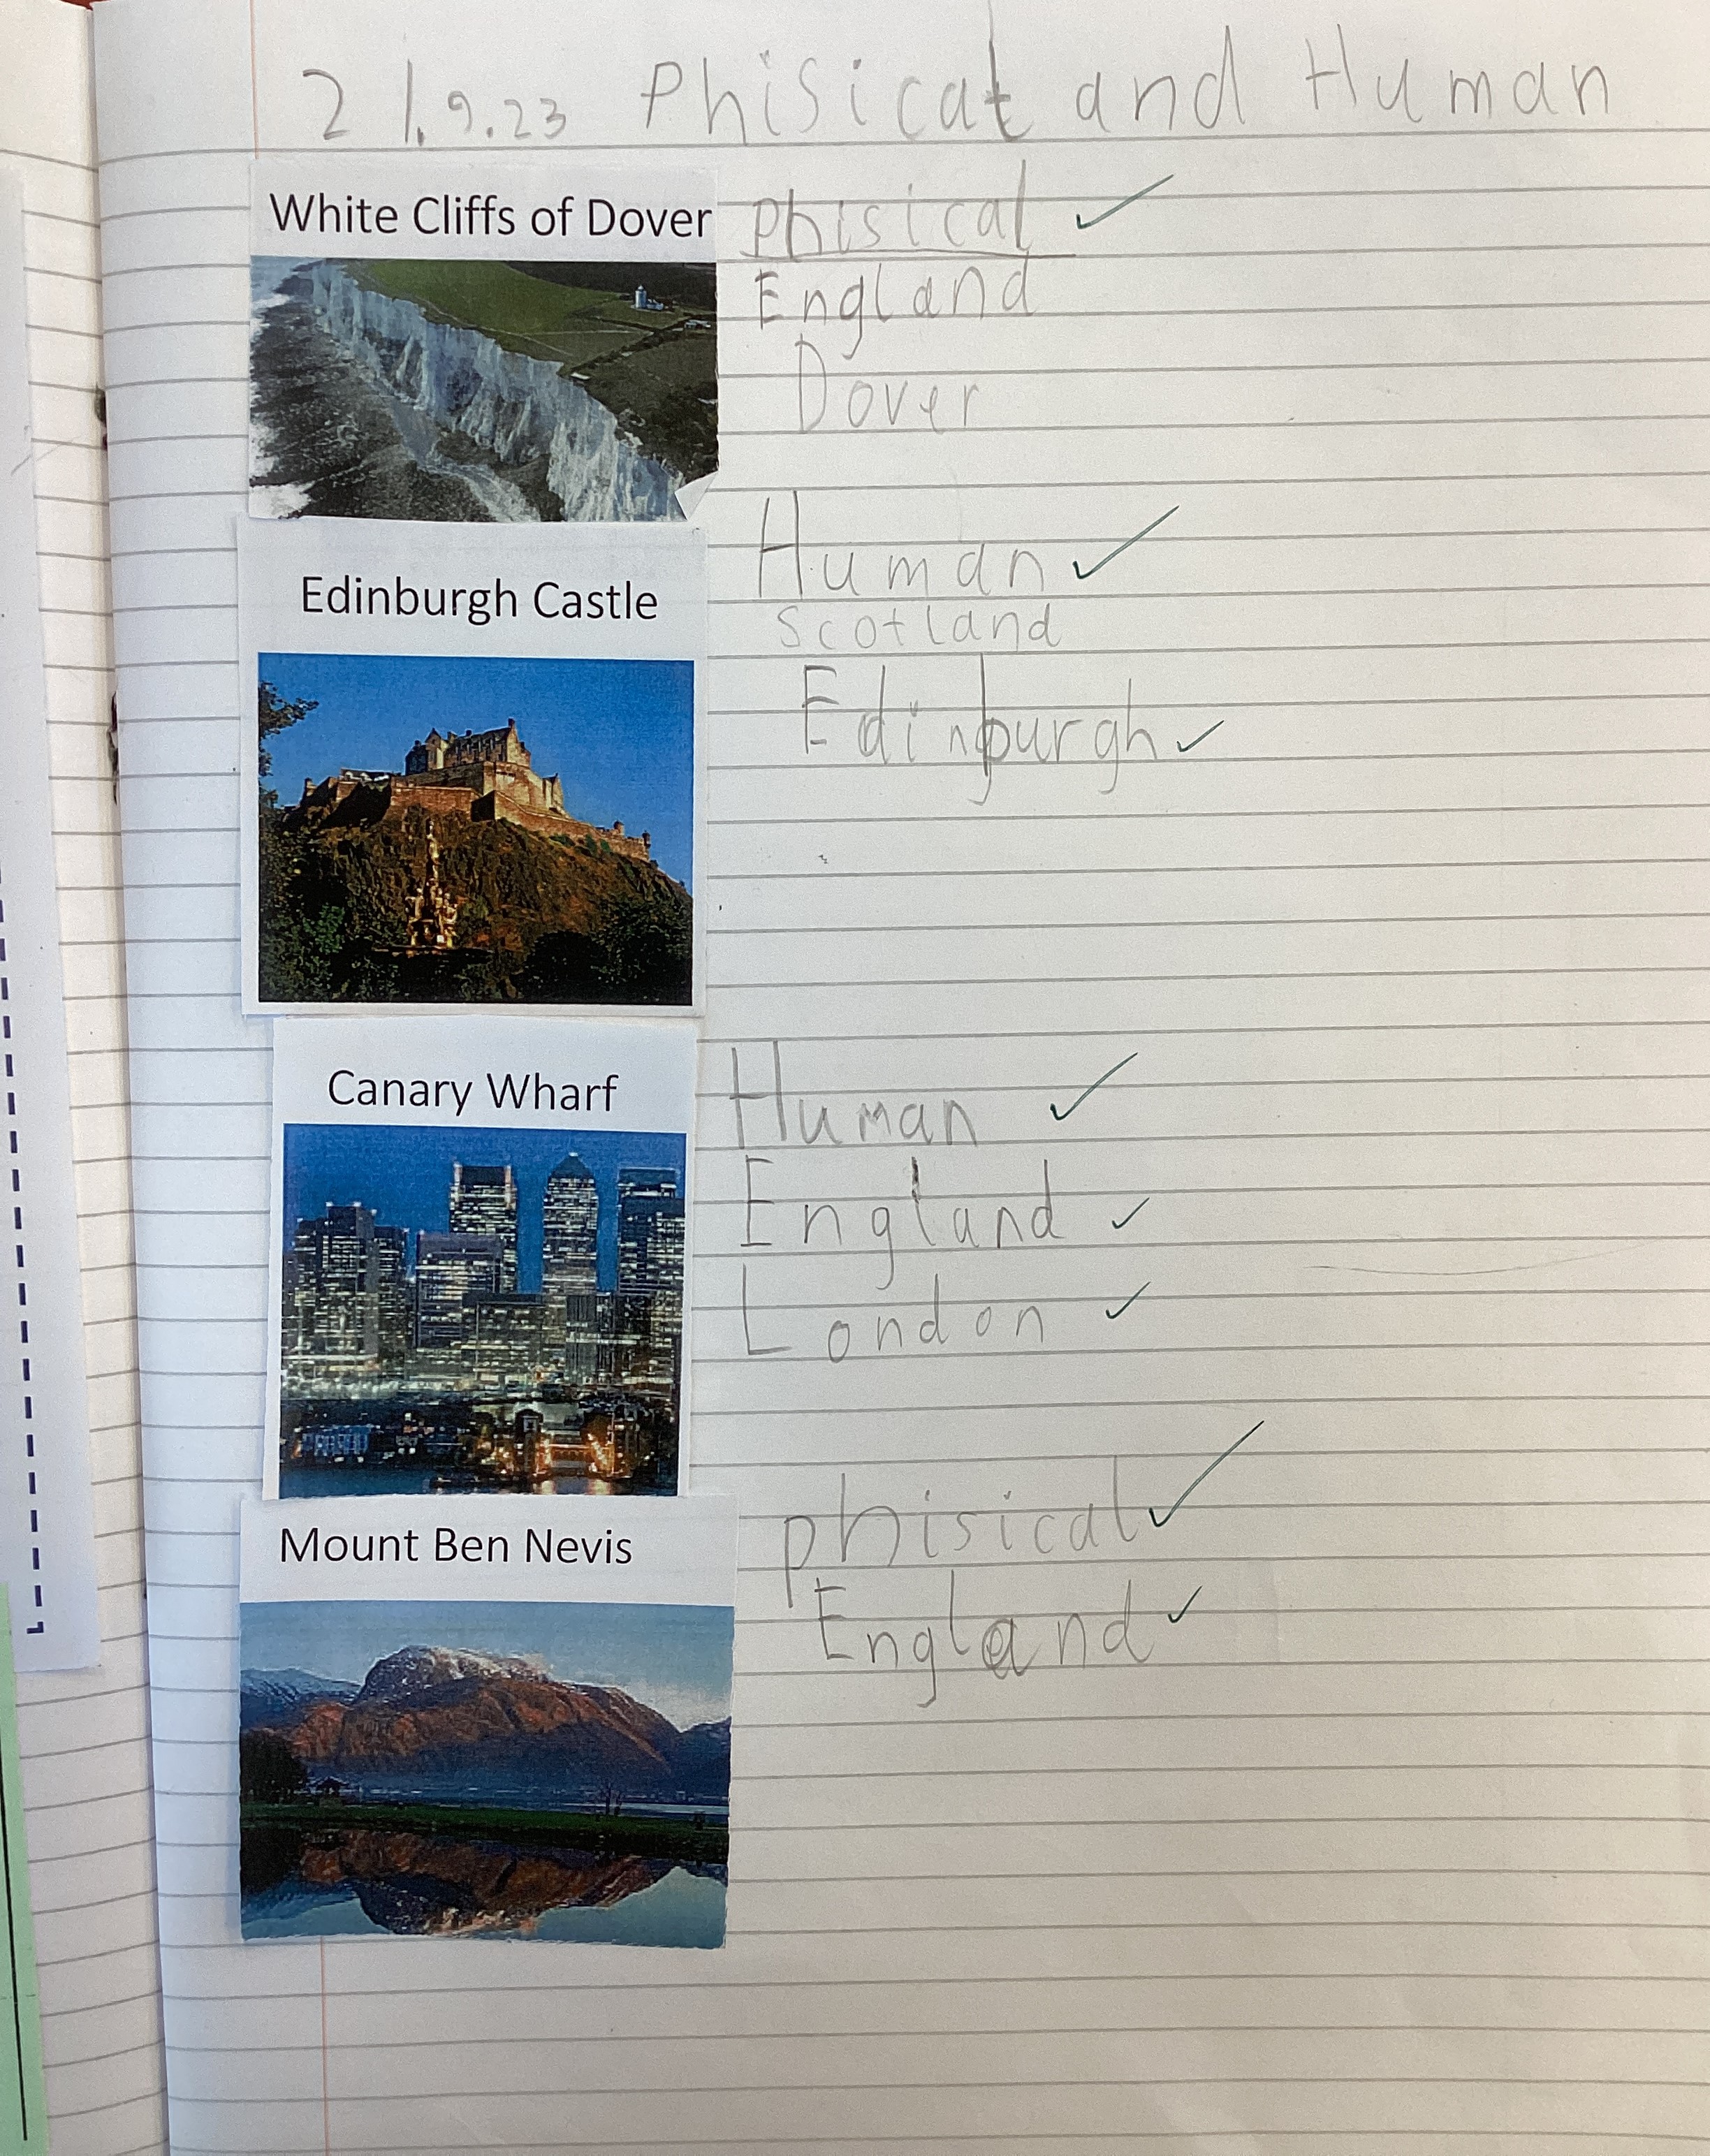 21.9.23 Phisical and Human
White Cliffs of Dover
phisical
England
Dover
Edinburgh Castle
Human
Scotland
Edinburgh
Canary Wharf
Human
England
London
Mount Ben Nevis
phisical
England